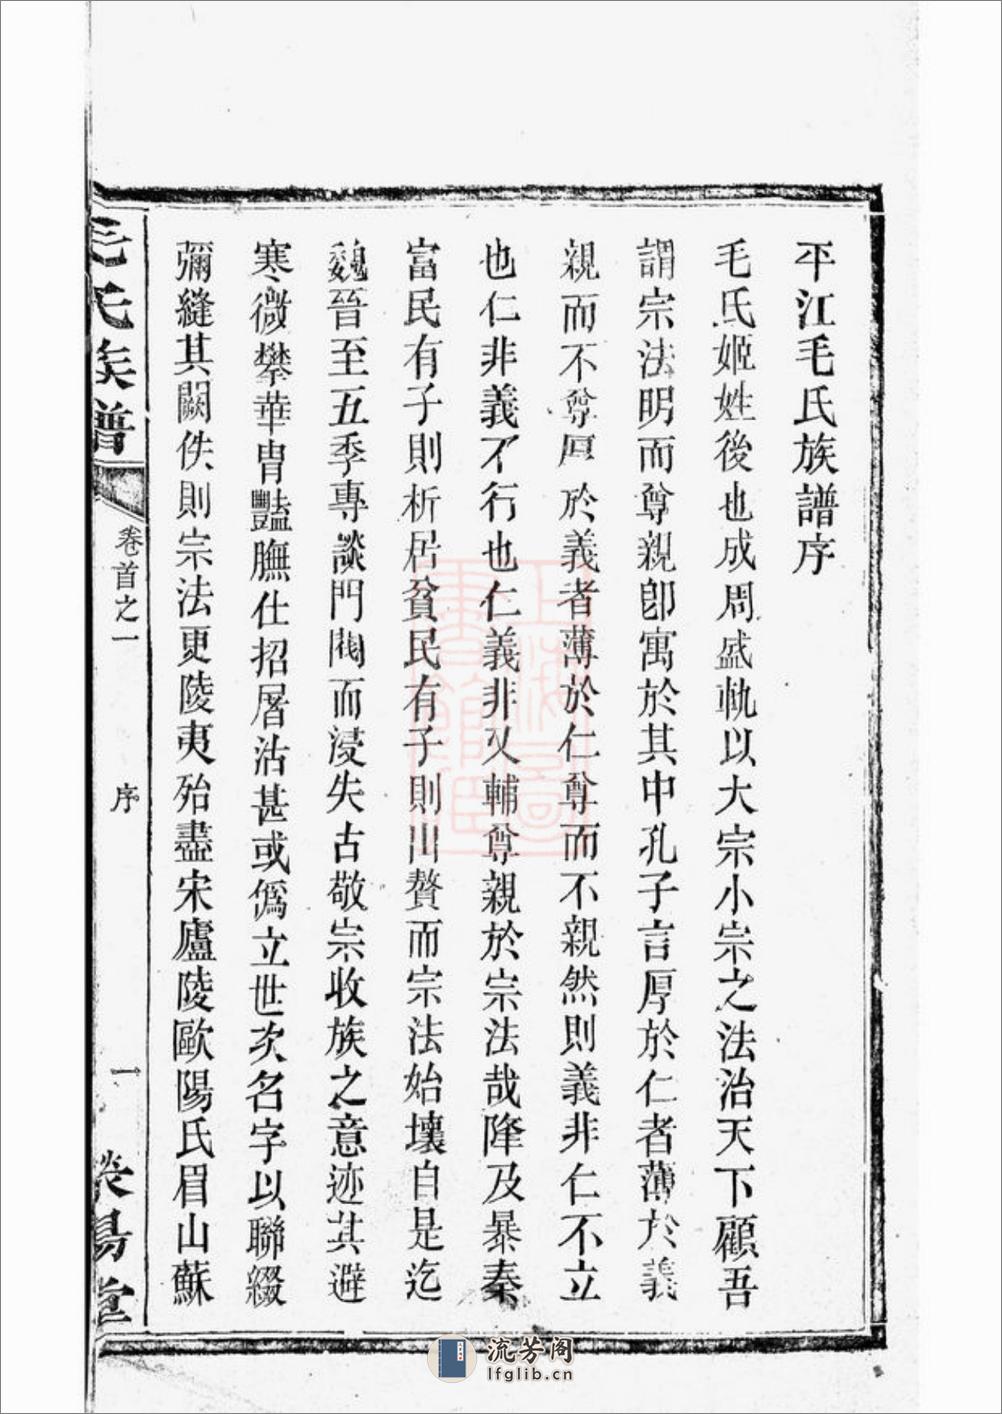 平江毛氏族譜序
毛氏姬姓後也成周盛軌以大宗小宗之法治天下顧吾
謂宗法明而尊親卽寓於其中孔子言厚於仁者薄於義
親而不尊厚於義者薄於仁尊而不親然則義非仁不立
也仁非義不行也仁義非又輔尊親於宗法哉降及暴秦
富民有子則析居貧民有子則出贅而宗法始壞自是迄
魏晉至五季專談門閥而浸失古敬宗收族之意迹其避
寒微攀華胄豔膴仕招厝沾甚或僞立世次名字以聯綴
彌縫其闕佚則宗法更陵夷殆盡宋廬陵歐陽氏眉山蘇
毛氏族譜
卷首之一
序
一
滎陽堂
上海圖書館藏
流芳阁
lfglib.cn